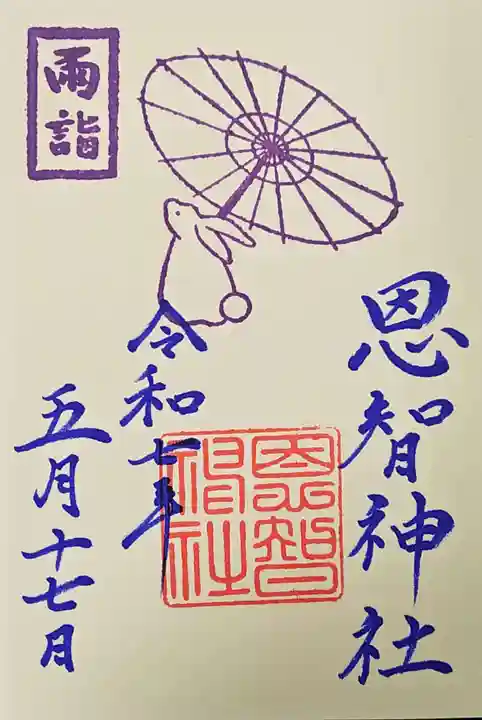 雨詣
恩智神社
恩智
神社
令和七年
五月十七日